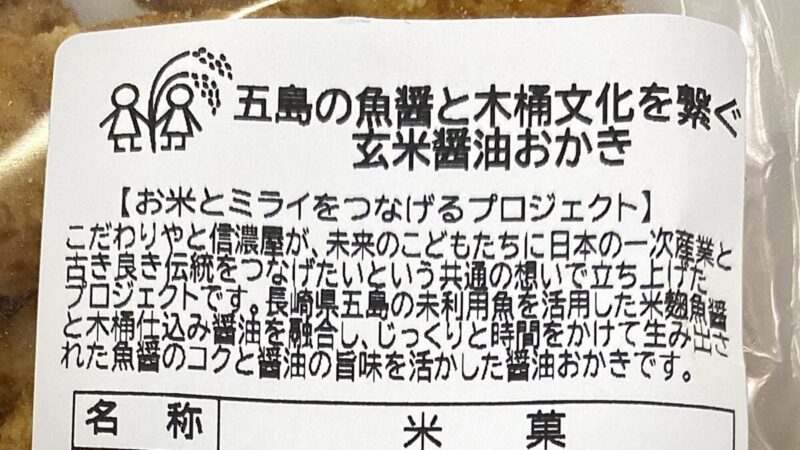 五島の魚醤と木桶文化を繋ぐ
玄米醤油おかき
【お米とミライをつなげるプロジェクト】
こだわりやと信濃屋が、未来のこどもたちに日本の一次産業と
古き良き伝統をつなげたいという共通の想いで立ち上げた
プロジェクトです。長崎県五島の未利用魚を活用した米麹魚醤
と木桶仕込み醤油を融合し、じっくりと時間をかけて生み出さ
れた魚醤のコクと醤油の旨味を活かした醤油おかきです。
名称 米菓